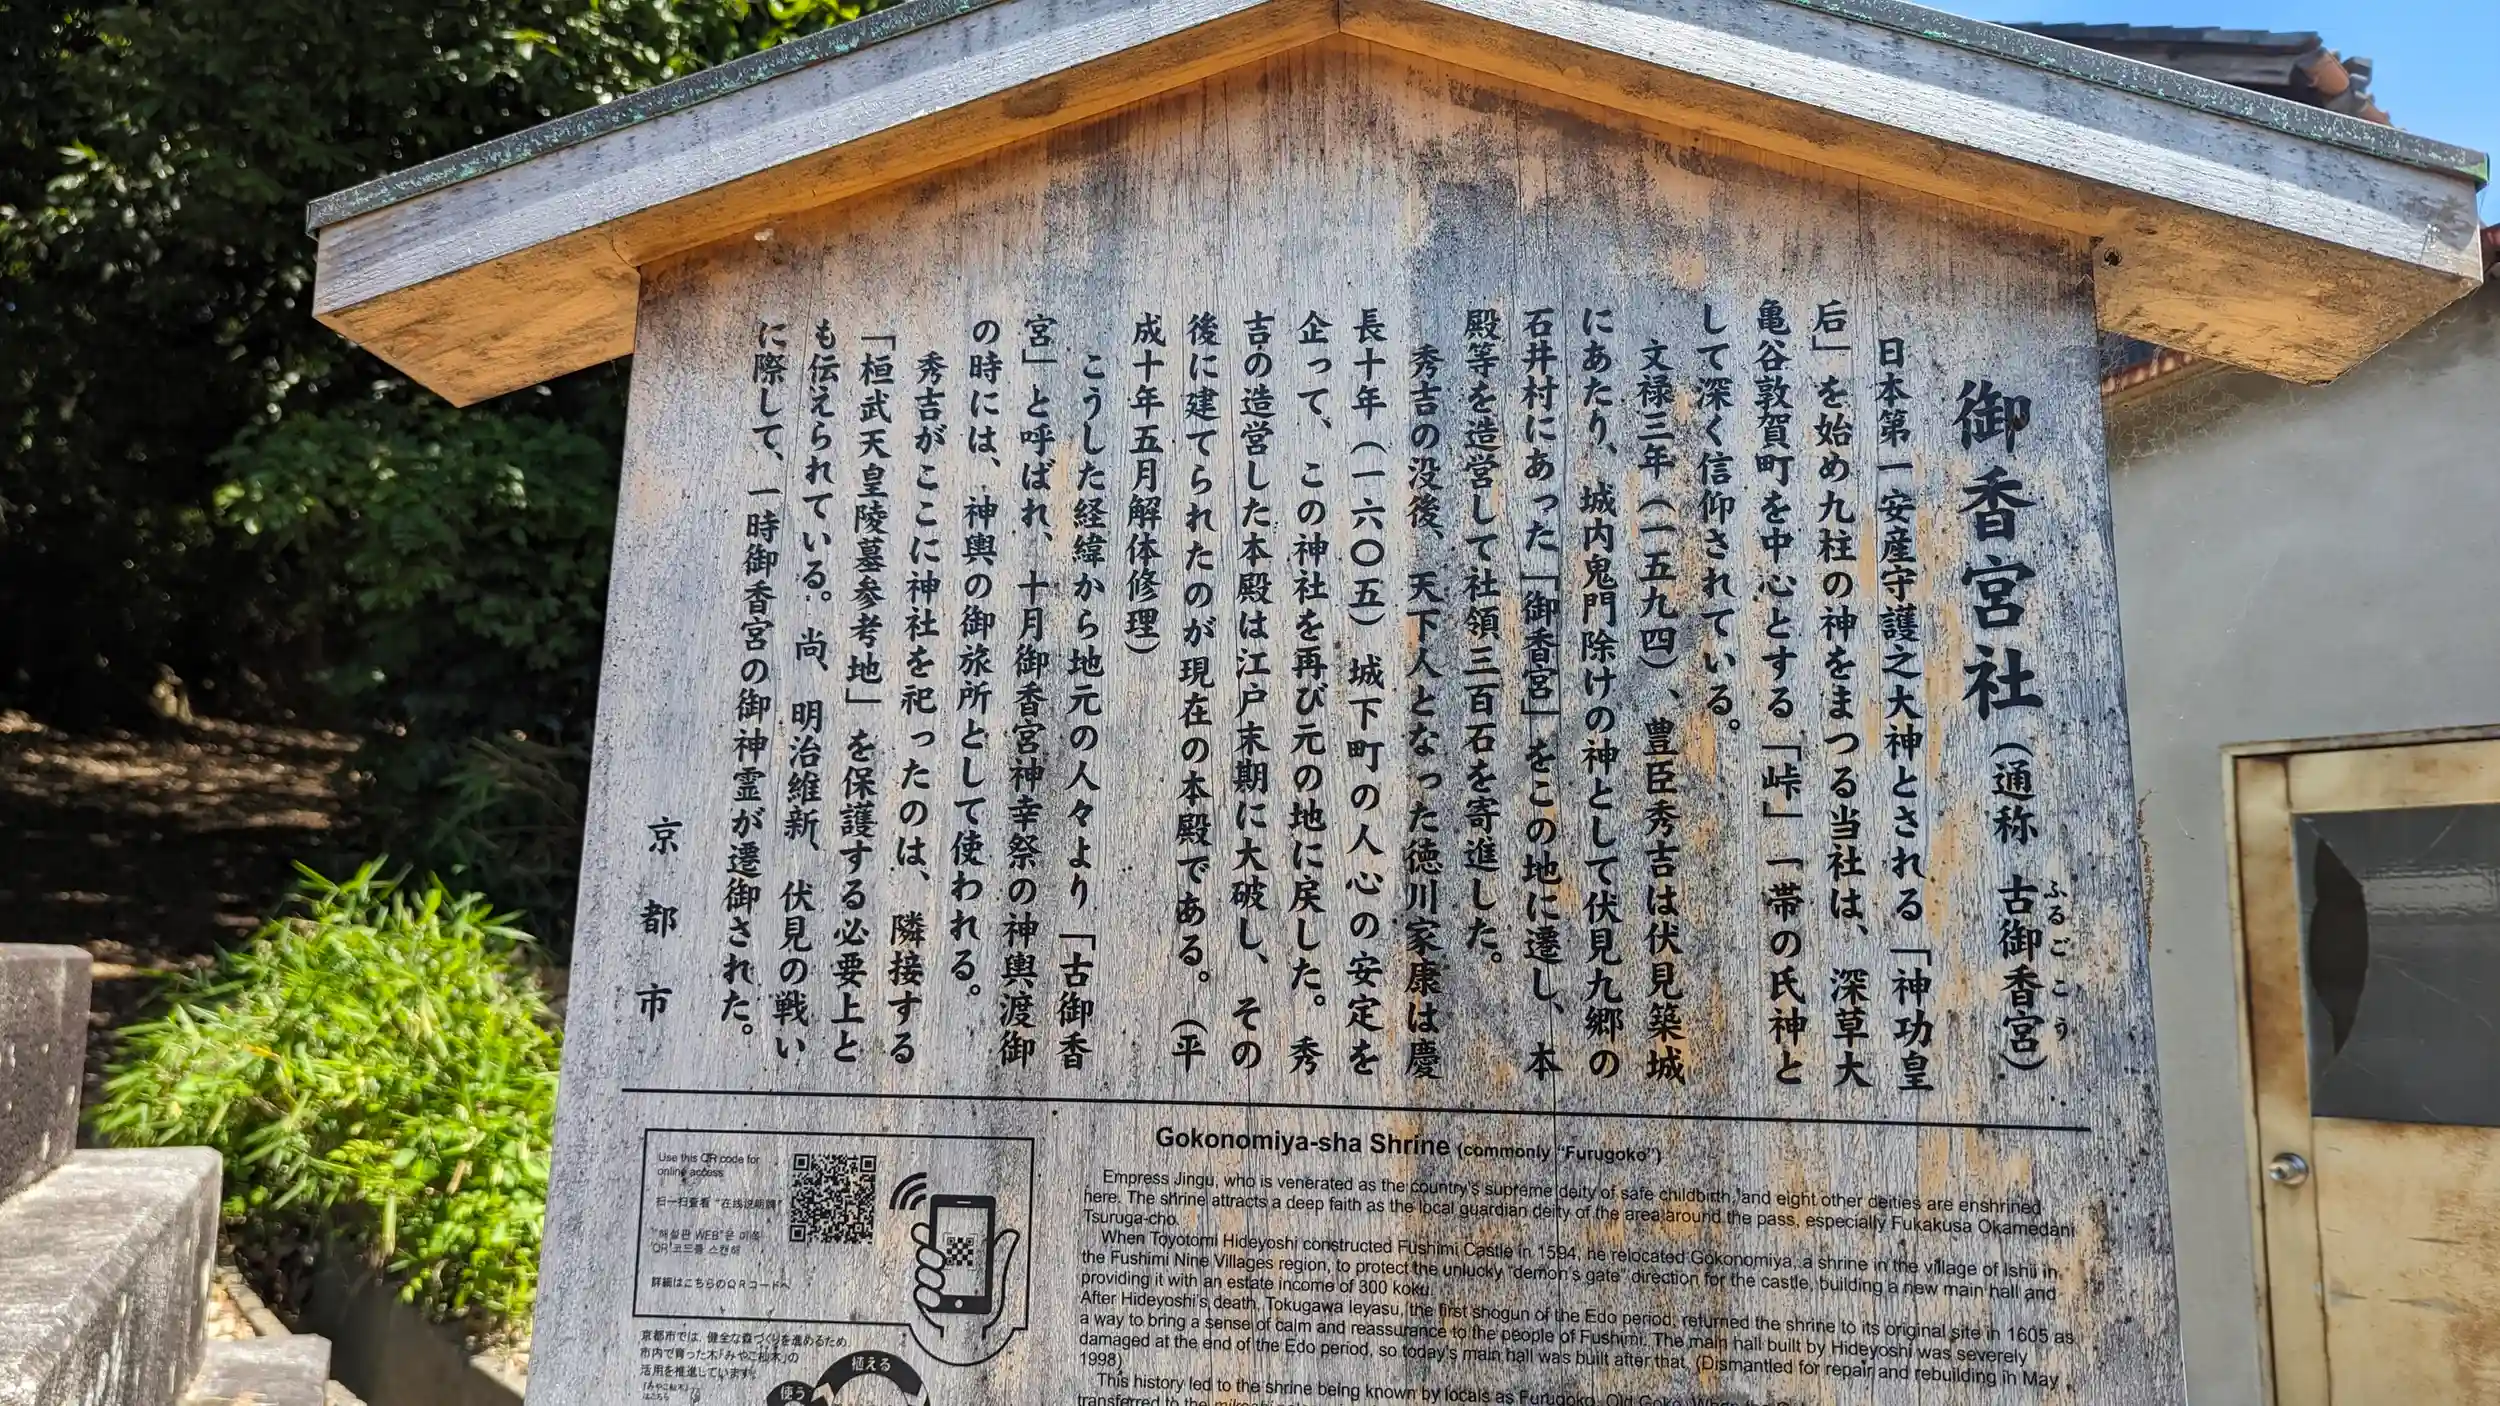 御香宮社(通称 古御香宮)
ふるごこう
日本第一安産守護之大神とされる「神功皇
后」を始め九柱の神をまつる当社は、深草大
亀谷敦賀町を中心とする「峠」一帯の氏神と
して深く信仰されている。
文禄三年(一五九四)、豊臣秀吉は伏見築城
にあたり、城内鬼門除けの神として伏見九郷の
石井村にあった「御香宮」をこの地に遷し、本
殿等を造営して社領三百石を寄進した。
秀吉の没後、天下人となった徳川家康は慶
長十年(一六〇五)城下町の人心の安定を
企って、この神社を再び元の地に戻した。秀
吉の造営した本殿は江戸末期に大破し、その
後に建てられたのが現在の本殿である。(平
成十年五月解体修理)
こうした経緯から地元の人々より「古御香
宮」と呼ばれ、十月御香宮神幸祭の神輿渡御
の時には、神輿の御旅所として使われる。
秀吉がここに神社を祀ったのは、隣接する
「桓武天皇陵墓参考地」を保護する必要上と
も伝えられている。尚、明治維新、伏見の戦い
に際して、一時御香宮の御神霊が遷御された。
京都市
Use this QR code for
online access
扫一扫查看 "在线说明牌"
"해설판 WEB"은 이쪽
QR코드를 스캔해
詳細はこちらのQRコードへ
京都市では、健全な森づくりを進めるため
市内で育った木「みやこ杣木」の
活用を推進しています。
「みやこ杣木」
はこちら
植える
使う
Gokonomiya-sha Shrine (commonly "Furugoko")
Empress Jingu, who is venerated as the country's supreme deity of safe childbirth, and eight other deities are enshrined
here. The shrine attracts a deep faith as the local guardian deity of the area around the pass, especially Fukakusa Okamedani
Tsuruga-cho.
When Toyotomi Hideyoshi constructed Fushimi Castle in 1594, he relocated Gokonomiya, a shrine in the village of Ishii in
the Fushimi Nine Villages region, to protect the unlucky "demon's gate" direction for the castle, building a new main hall and
providing it with an estate income of 300 koku.
After Hideyoshi's death, Tokugawa Ieyasu, the first shogun of the Edo period, returned the shrine to its original site in 1605 as
a way to bring a sense of calm and reassurance to the people of Fushimi. The main hall built by Hideyoshi was severely
damaged at the end of the Edo period, so today's main hall was built after that. (Dismantled for repair and rebuilding in May
1998)
This history led to the shrine being known by locals as Furugoko, Old Goko. When the
transferred to the